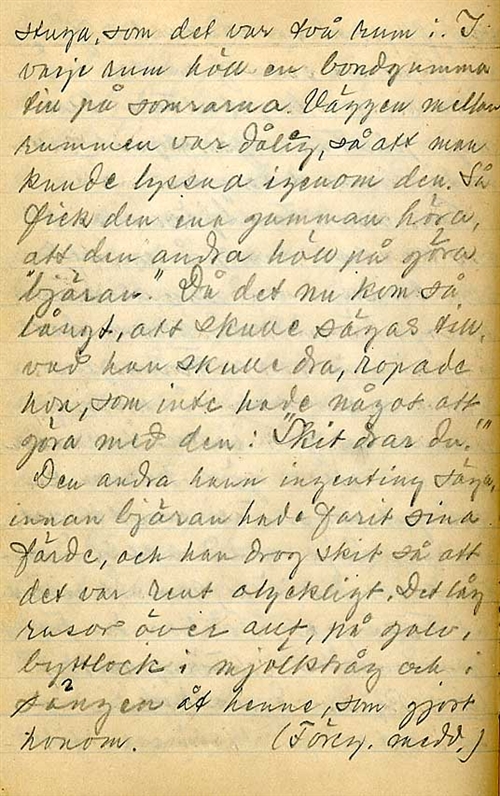 stuga, som det var två rum i. I
varje rum höll en bondgumma
till på somrarna. Väggen mellan
rummen var dålig, så att man
kunde lyssna igenom den. Så
fick den ena gumman höra,
att den andra höll på göra
"bjäran." Då det nu kom så
långt, att skulle sägas till,
vad han skulle dra, ropade
hon, som inte hade något att
göra med den: "Skit drar du."
Den andra hann ingenting säga,
innan bjäran hade farit sina
färde, och han drog skit så att
det var rent olyckligt. Det låg
rusor över allt, på golv,
byttlock i mjölktråg och i
sängen åt henne, som gjort
honom. (Föreg. medd.)